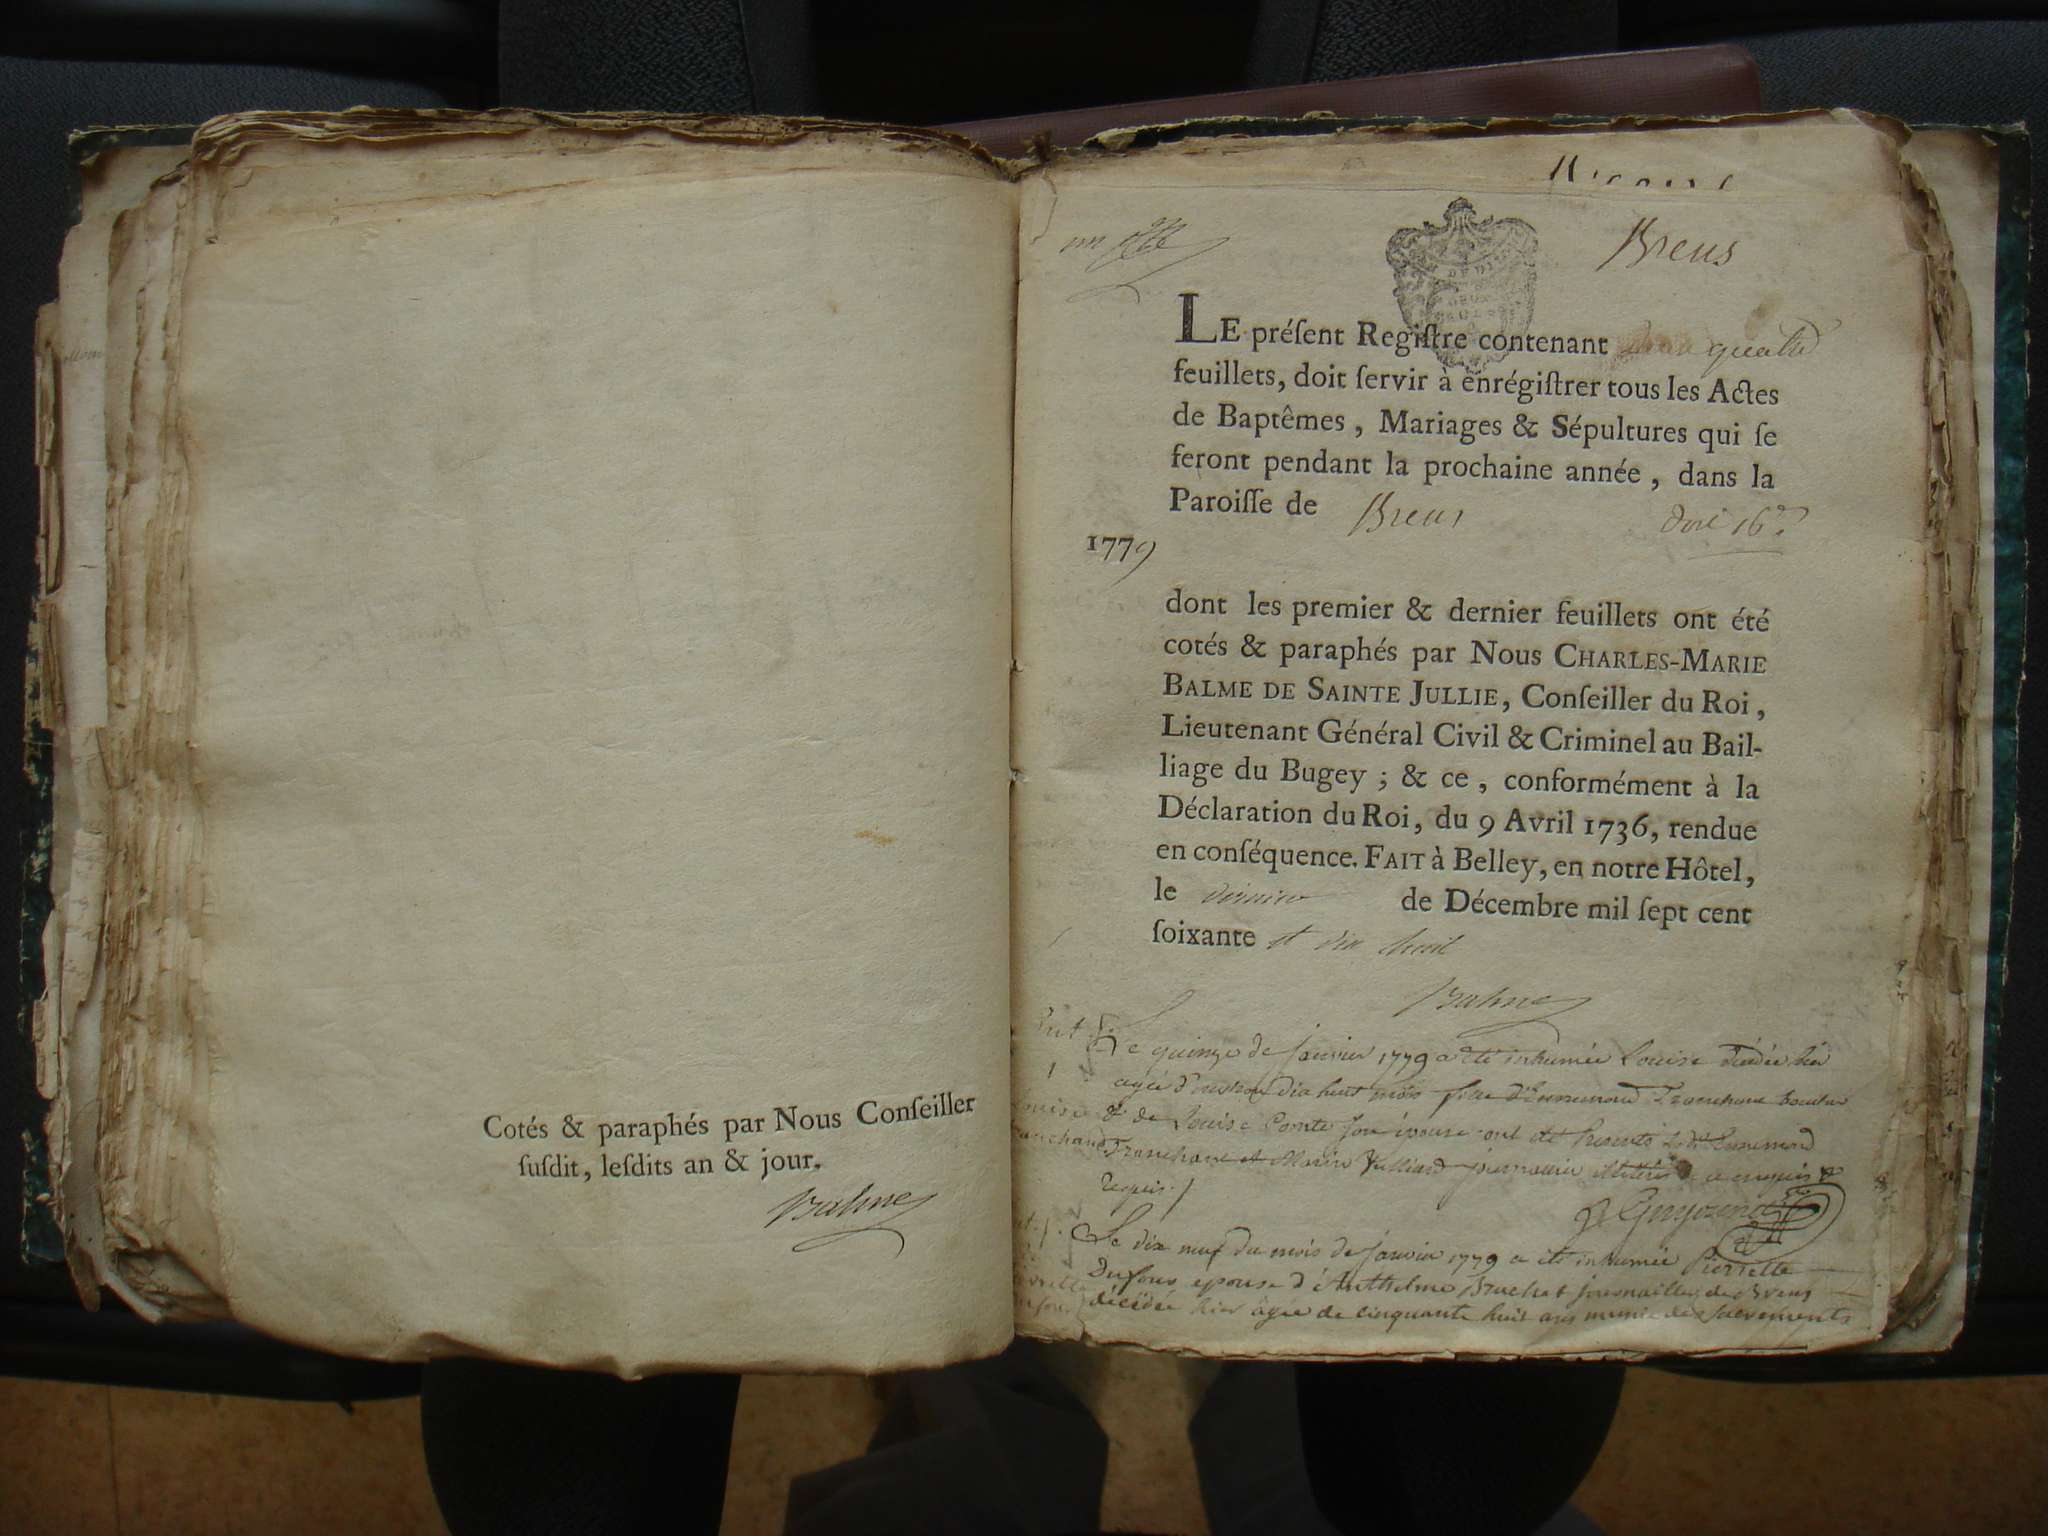 Cotés & paraphés par Nous Conſeiller
ſuſdit, leſdits an & jour.
Balme
Brens
LE préſent Regiſtre contenant quatre
feuillets, doit ſervir à enrégiſtrer tous les Actes
de Baptêmes, Mariages & Sépultures qui ſe
feront pendant la prochaine année, dans la
Paroiſſe de Brens
1779
dont les premier & dernier feuillets ont été
cotés & paraphés par Nous CHARLES-MARIE
BALME DE SAINTE JULLIE, Conſeiller du Roi,
Lieutenant Général Civil & Criminel au Bail-
liage du Bugey; & ce, conformément à la
Déclaration du Roi, du 9 Avril 1736, rendue
en conſéquence. FAIT à Belley, en notre Hôtel,
le dernier de Décembre mil ſept cent
ſoixante et dix huit
Balme
Le quinze de janvier 1779 a été inhumée Louise décédée hier
agée d'environ dix huit mois fille d'Ennemond Tranchand
& de Louise Ponte son épouse ont été presents led Ennemond
Tranchand et Marin Vulliard journalier illitérés de ce enquis &
requis
Le dix neuf du mois de janvier 1779 a été inhumée Pierrette
Dufour épouse d'Anthelme Brachet journallier de Brens
décédée hier agée de cinquante huit ans munie des sacrements